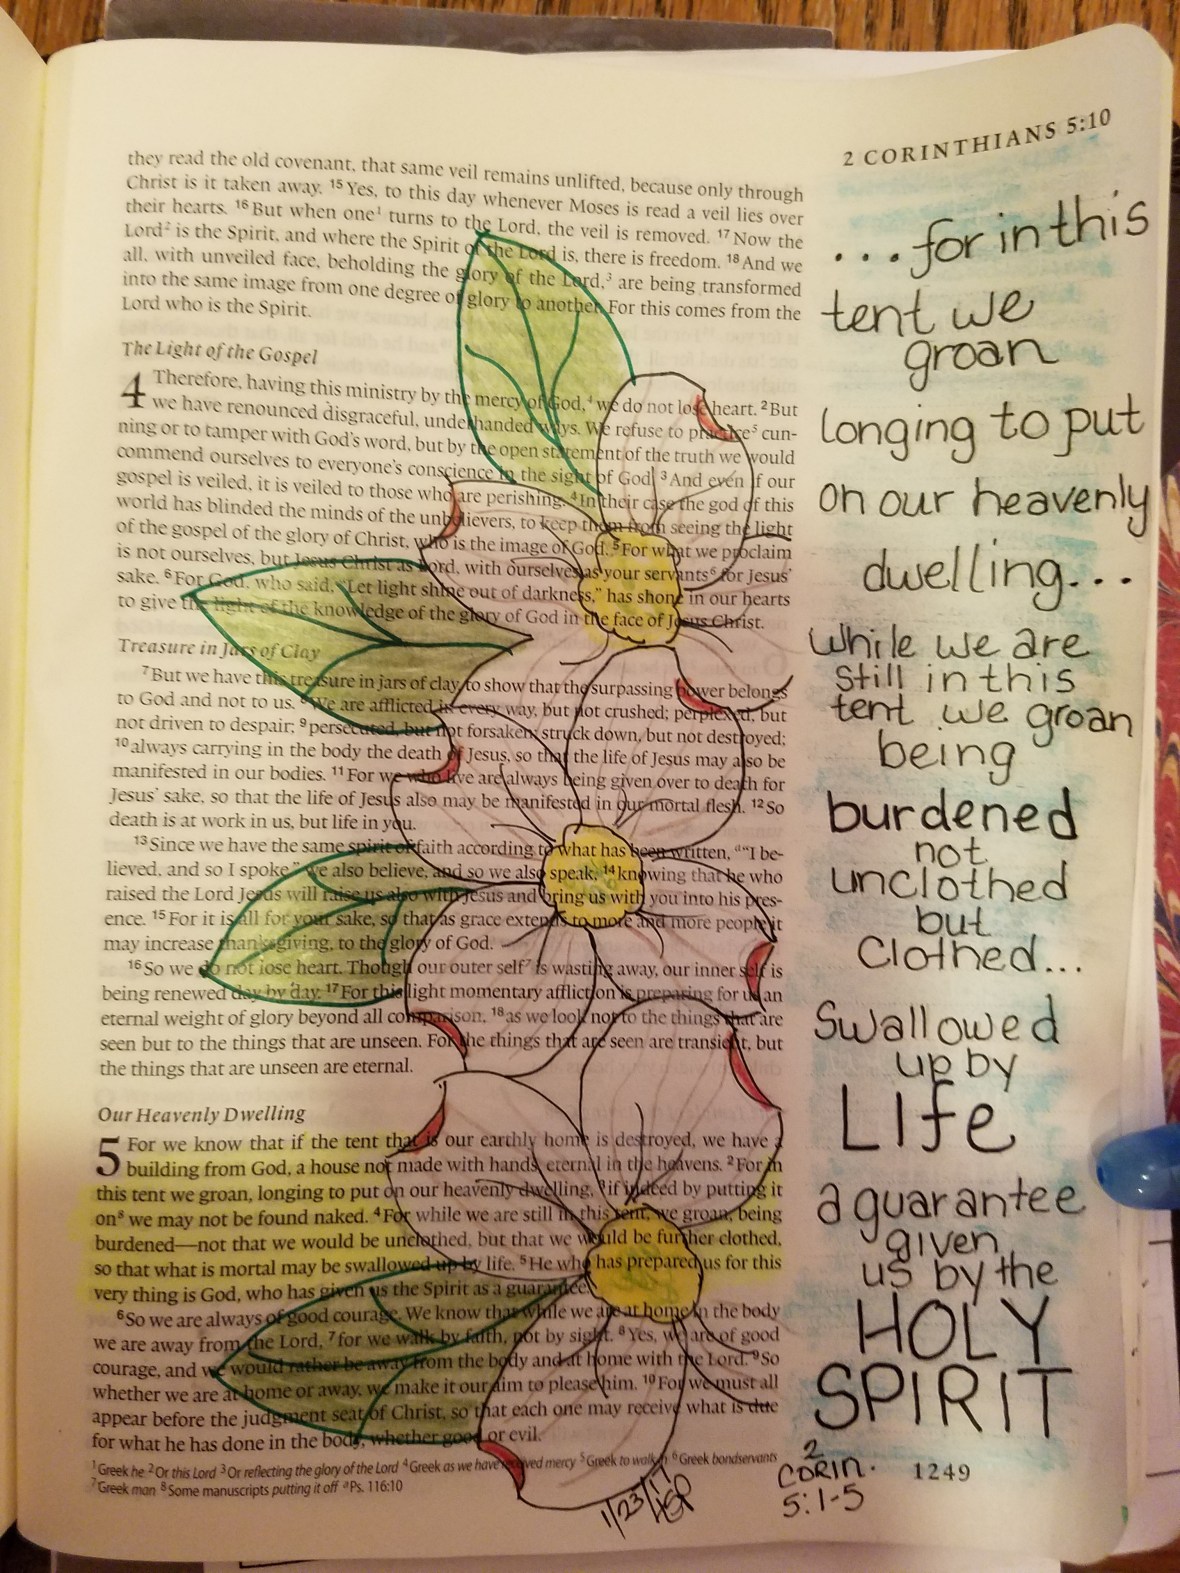 2 CORINTHIANS 5:10
they read the old covenant, that same veil remains unlifted, because only through
Christ is it taken away. 15 Yes, to this day whenever Moses is read a veil lies over
their hearts. 16 But when one1 turns to the Lord, the veil is removed. 17 Now the
Lord2 is the Spirit, and where the Spirit of the Lord is, there is freedom. 18 And we
all, with unveiled face, beholding the glory of the Lord,3 are being transformed
into the same image from one degree of glory to another. For this comes from the
Lord who is the Spirit.
The Light of the Gospel
4 Therefore, having this ministry by the mercy of God,4 we do not lose heart. 2 But
we have renounced disgraceful, underhanded ways. We refuse to practice5 cun-
ning or to tamper with God's word, but by the open statement of the truth we would
commend ourselves to everyone's conscience in the sight of God. 3 And even if our
gospel is veiled, it is veiled to those who are perishing. 4 In their case the god of this
world has blinded the minds of the unbelievers, to keep them from seeing the light
of the gospel of the glory of Christ, who is the image of God. 5 For what we proclaim
is not ourselves, but Jesus Christ as Lord, with ourselves as your servants6 for Jesus'
sake. 6 For God, who said, "Let light shine out of darkness," has shone in our hearts
to give the light of the knowledge of the glory of God in the face of Jesus Christ.
Treasure in Jars of Clay
7 But we have this treasure in jars of clay, to show that the surpassing power belongs
to God and not to us. 8 We are afflicted in every way, but not crushed; perplexed, but
not driven to despair; 9 persecuted, but not forsaken; struck down, but not destroyed;
10 always carrying in the body the death of Jesus, so that the life of Jesus may also be
manifested in our bodies. 11 For we who live are always being given over to death for
Jesus' sake, so that the life of Jesus also may be manifested in our mortal flesh. 12 So
death is at work in us, but life in you.
13 Since we have the same spirit of faith according to what has been written, a"I be-
lieved, and so I spoke," we also believe, and so we also speak, 14 knowing that he who
raised the Lord Jesus will raise us also with Jesus and bring us with you into his pres-
ence. 15 For it is all for your sake, so that as grace extends to more and more people it
may increase thanksgiving, to the glory of God.
16 So we do not lose heart. Though our outer self7 is wasting away, our inner self is
being renewed day by day. 17 For this light momentary affliction is preparing for us an
eternal weight of glory beyond all comparison, 18 as we look not to the things that are
seen but to the things that are unseen. For the things that are seen are transient, but
the things that are unseen are eternal.
Our Heavenly Dwelling
5 For we know that if the tent that is our earthly home is destroyed, we have a
building from God, a house not made with hands, eternal in the heavens. 2 For in
this tent we groan, longing to put on our heavenly dwelling, 3 if indeed by putting it
on8 we may not be found naked. 4 For while we are still in this tent, we groan, being
burdened—not that we would be unclothed, but that we would be further clothed,
so that what is mortal may be swallowed up by life. 5 He who has prepared us for this
very thing is God, who has given us the Spirit as a guarantee.
6 So we are always of good courage. We know that while we are at home in the body
we are away from the Lord, 7 for we walk by faith, not by sight. 8 Yes, we are of good
courage, and we would rather be away from the body and at home with the Lord. 9 So
whether we are at home or away, we make it our aim to please him. 10 For we must all
appear before the judgment seat of Christ, so that each one may receive what is due
for what he has done in the body, whether good or evil.
1 Greek he 2 Or this Lord 3 Or reflecting the glory of the Lord 4 Greek as we have received mercy 5 Greek to walk in 6 Greek bondservants
7 Greek man 8 Some manuscripts putting it off a Ps. 116:10
...for in this
tent we
groan
longing to put
on our heavenly
dwelling...
while we are
still in this
tent we groan
being
burdened
not
unclothed
but
clothed...
Swallowed
up by
LIfe
a guarantee
given
us by the
HOLY
SPIRIT
2
CORIN.
5:1-5
1249
1/23/17